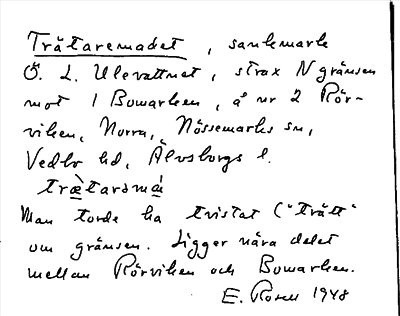 Trätaremadet, sankmark
Ö. L. Ulevattnet, strax N gränsen
mot 1 Bowarken, å nr 2 Rör-
viken, Norra, Nössemarks sn,
Vedbo hd, Älvsborgs l.
trætarəmá
Man torde ha tristat ("trätt"
om gränsen. Ligger nära delet
mellan Rörviken och Bowarken.
E. Rosell 1948